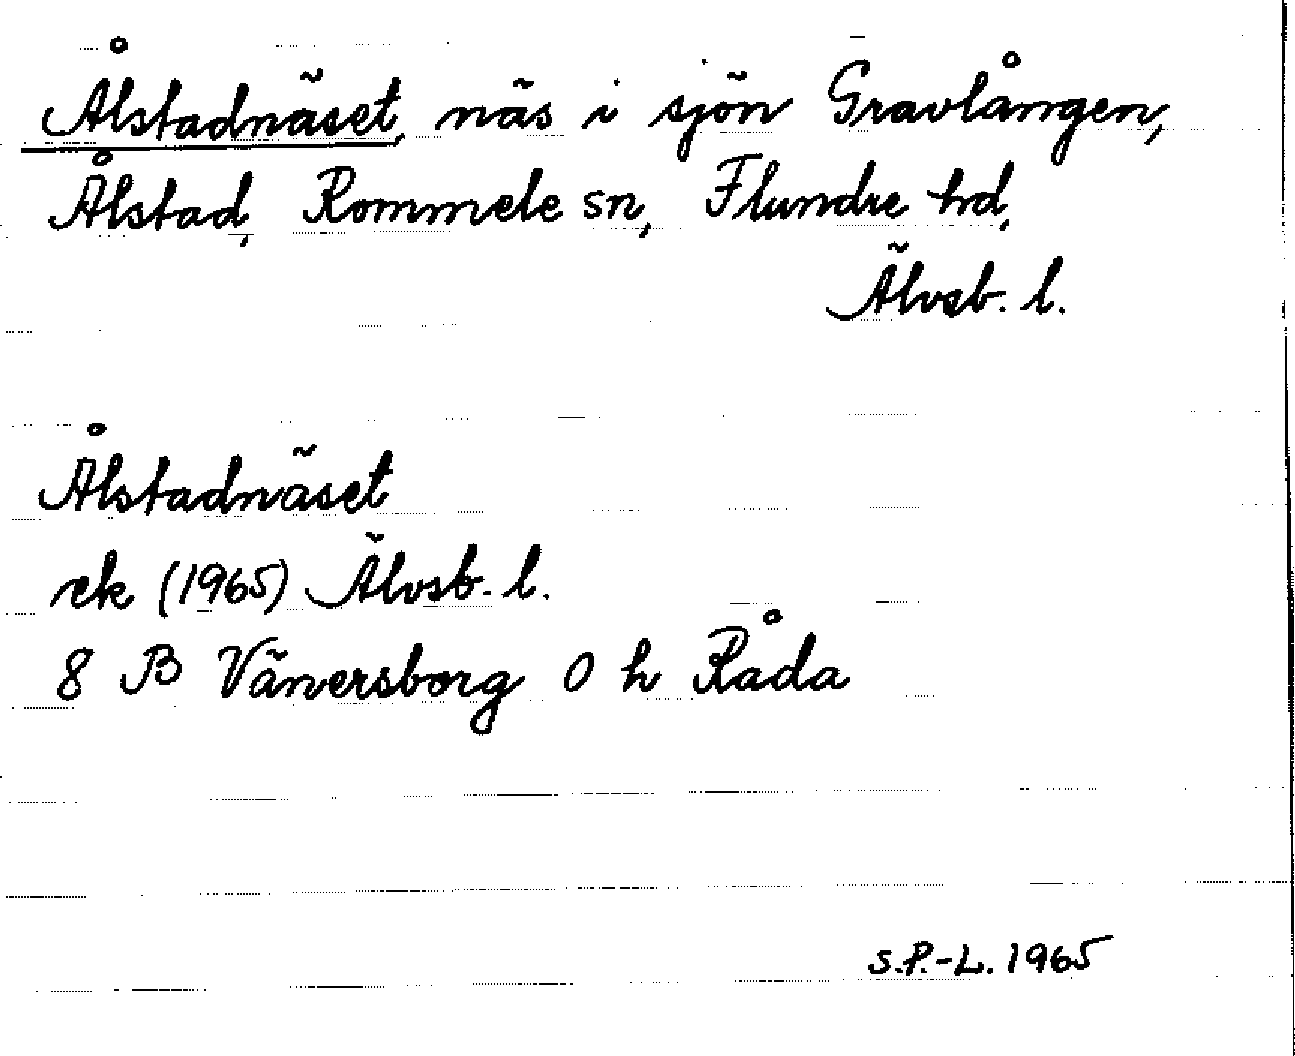 Ålstadnäset, näs i sjön Gravlången,
Ålstad, Rommele sn, Flundre hd,
Älvsb. l.
Ålstadnäset
ek (1965) Älvsb. l.
8 B Vänersborg 0 h Råda
S.P.-L. 1965